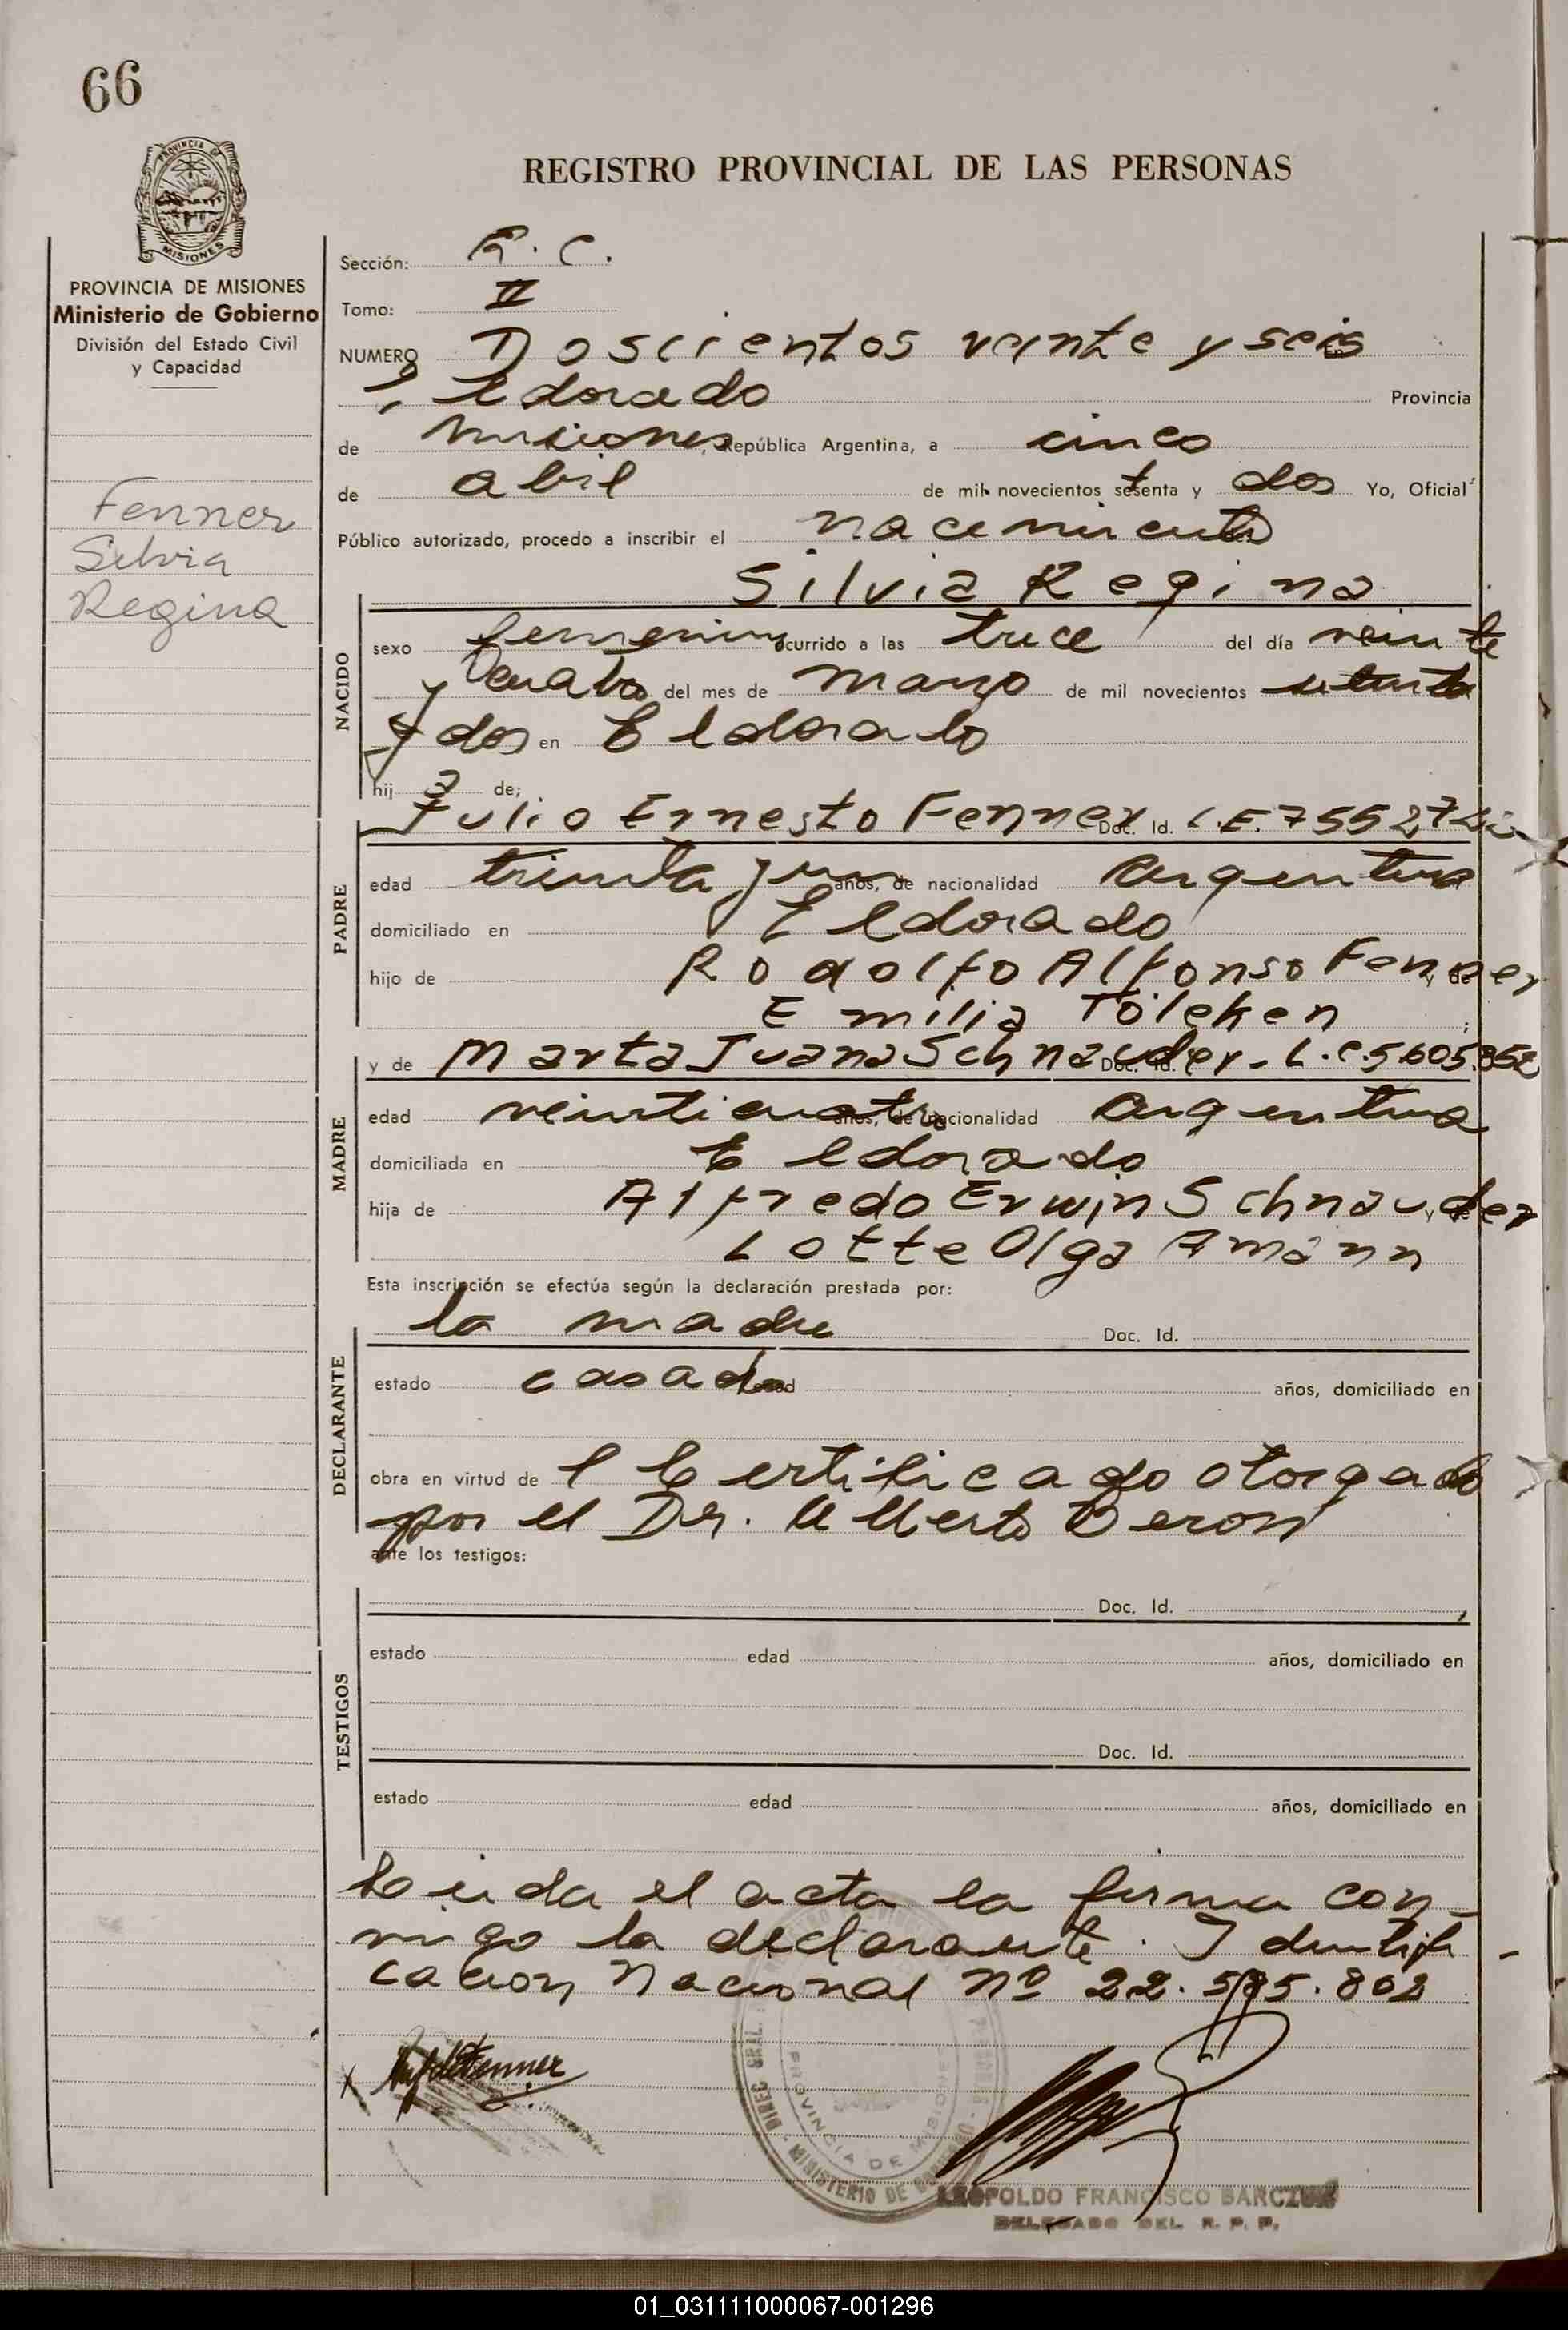 66
REGISTRO PROVINCIAL DE LAS PERSONAS
PROVINCIA DE MISIONES
Ministerio de Gobierno
División del Estado Civil
y Capacidad
Fenner
Silvia
Regina
Sección: R. C.
Tomo: II
NUMERO Doscientos veinte y seis
Eldorado Provincia
de Misiones, República Argentina, a cinco
de abril de mil novecientos setenta y dos Yo, Oficial
Público autorizado, procedo a inscribir el nacimiento
Silvia Regina
NACIDO
sexo femenino ocurrido a las trece del día veinte
y del mes de marzo de mil novecientos setenta
y dos en Eldorado
hij a de;
Julio Ernesto Fenner Doc. Id. L.E. 7552
PADRE
edad treinta y un años, de nacionalidad argentina
domiciliado en Eldorado
hijo de Rodolfo Alfonso Fenner y de
Emilia Töleken ;
y de Marta Juana Schnauder. Doc. Id. L.C. 5605.852
MADRE
edad veinticuatro años, de nacionalidad argentina
domiciliada en Eldorado
hija de Alfredo Erwin Schnauder y de
Lotte Olga Amann
Esta inscripción se efectúa según la declaración prestada por:
la madre Doc. Id.
DECLARANTE
estado casada edad años, domiciliado en
obra en virtud de l Certificado otorgado
por el Dr. Alberto Beron
ante los testigos:
Doc. Id. ,
TESTIGOS
estado edad años, domiciliado en
Doc. Id.
estado edad años, domiciliado en
Leida el acta la firma con-
migo la declarante. Identifi-
cacion Nacional Nº 22.585.802
Fenner
PROVINCIA DE MISIONES
MINISTERIO DE GOBIERNO
LEOPOLDO FRANCISCO BARCZUK
DELEGADO DEL R. P. P.
01_031111000067-001296